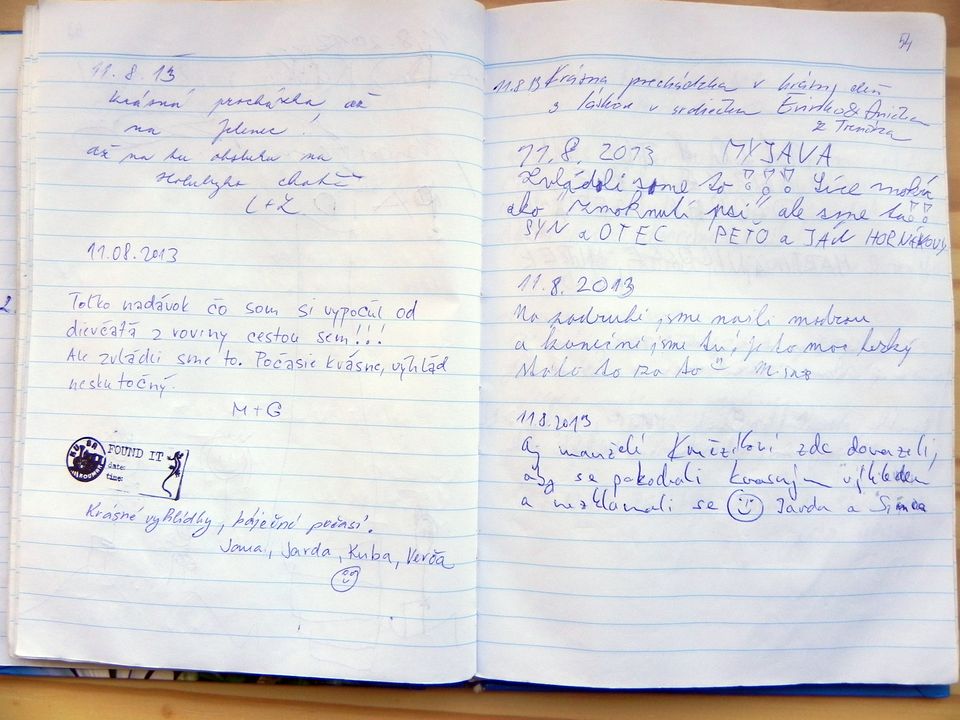 11. 8. 13
krásná procházka až
na Jelenec!
až na tu obsluhu na
Holubyho chatě
L+L
11.08.2013
Toľko nadávok čo som si vypočul od
dievčaťa z roviny cestou sem!!!
Ale zvládli sme to. Počasie krásne, výhľad
neskutočný.
M+G
FOUND IT
date:
time:
Krásné vyhlídky, báječné počasí.
Jana, Jarda, Kuba, Verča
54
11.8.13 Krásna prechádzka v krásny deň
s láskou v srdiečku Evinka & Anička
z Trenčína
11.8. 2013 MYJAVA
Zvládoli sme to Síce mokrí
ako "zmoknutí psi" ale sme tu
SYN a OTEC PEŤO a JÁN HORNÁKOVÝ
11.8.2013
Na podruhé jsme našli modrou
a konečně jsme tu, je to moc hezký
stálo to za to
11.8.2013
Aj manželé zde dorazeli,
aby se pokochali krásným výhledem
a nezklamali se Jarda a Simona